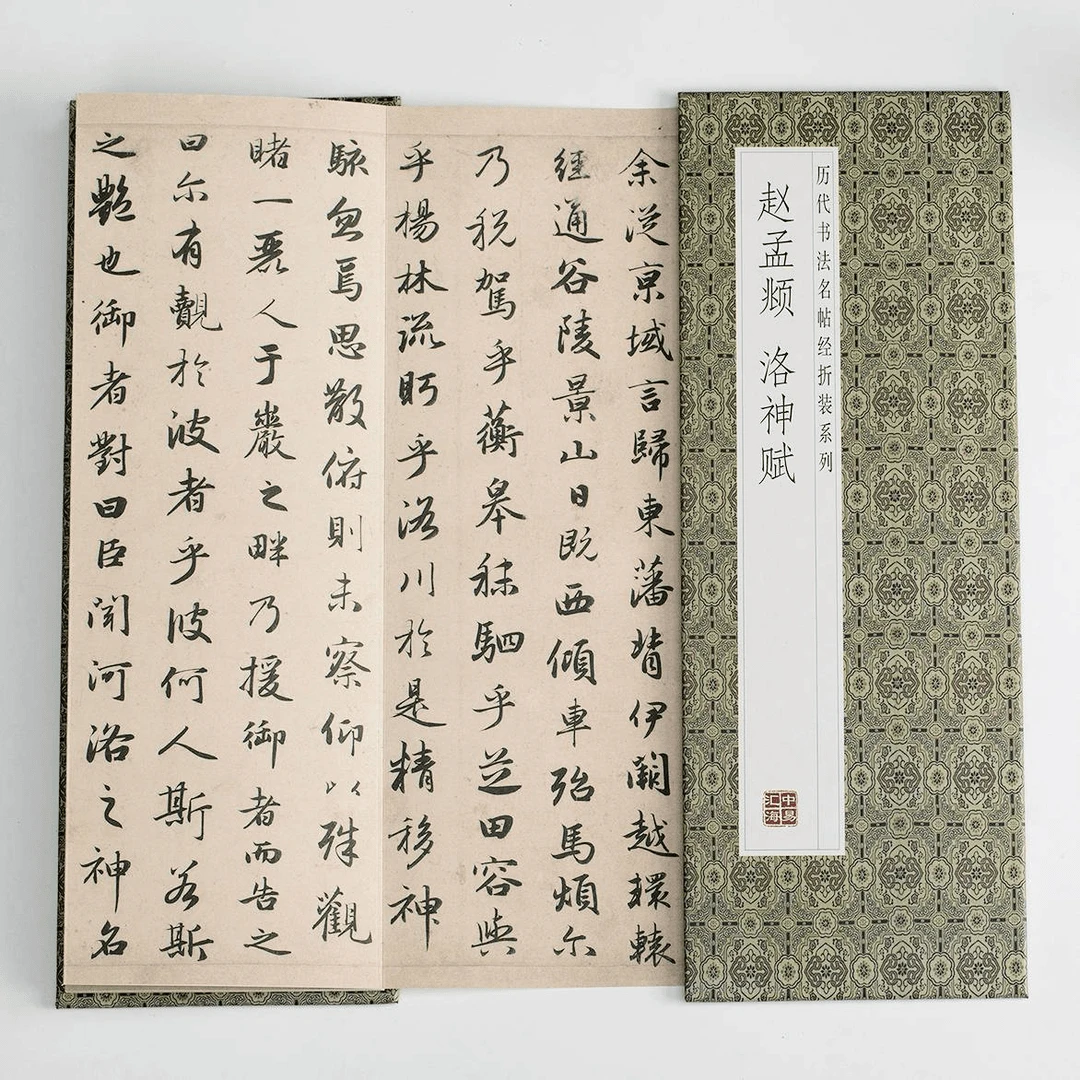 历代书法名帖经折装系列
赵孟𫖯 洛神赋
中易汇海
余從京域言歸東藩背伊闕越轘轅
經通谷陵景山日既西傾車殆馬煩尔
乃税駕乎蘅皋秣駟乎芝田容與
乎楊林流眄乎洛川於是精移神
駭忽焉思散俯則未察仰以殊觀
睹一麗人于巖之畔乃援御者而告之
曰尔有覿於彼者乎彼何人斯若斯
之艷也御者對曰臣聞河洛之神名